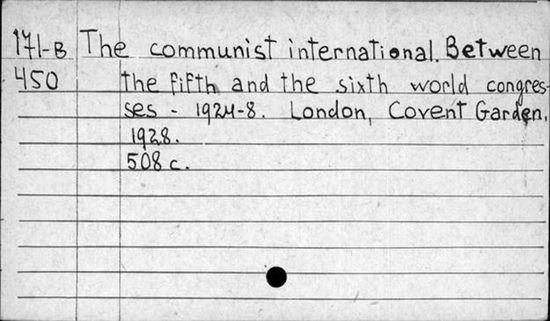 171-B The communist international. Between
450 the fifth and the sixth world congres-
ses - 1924-8. London, Covent Garden,
1928.
508 c.